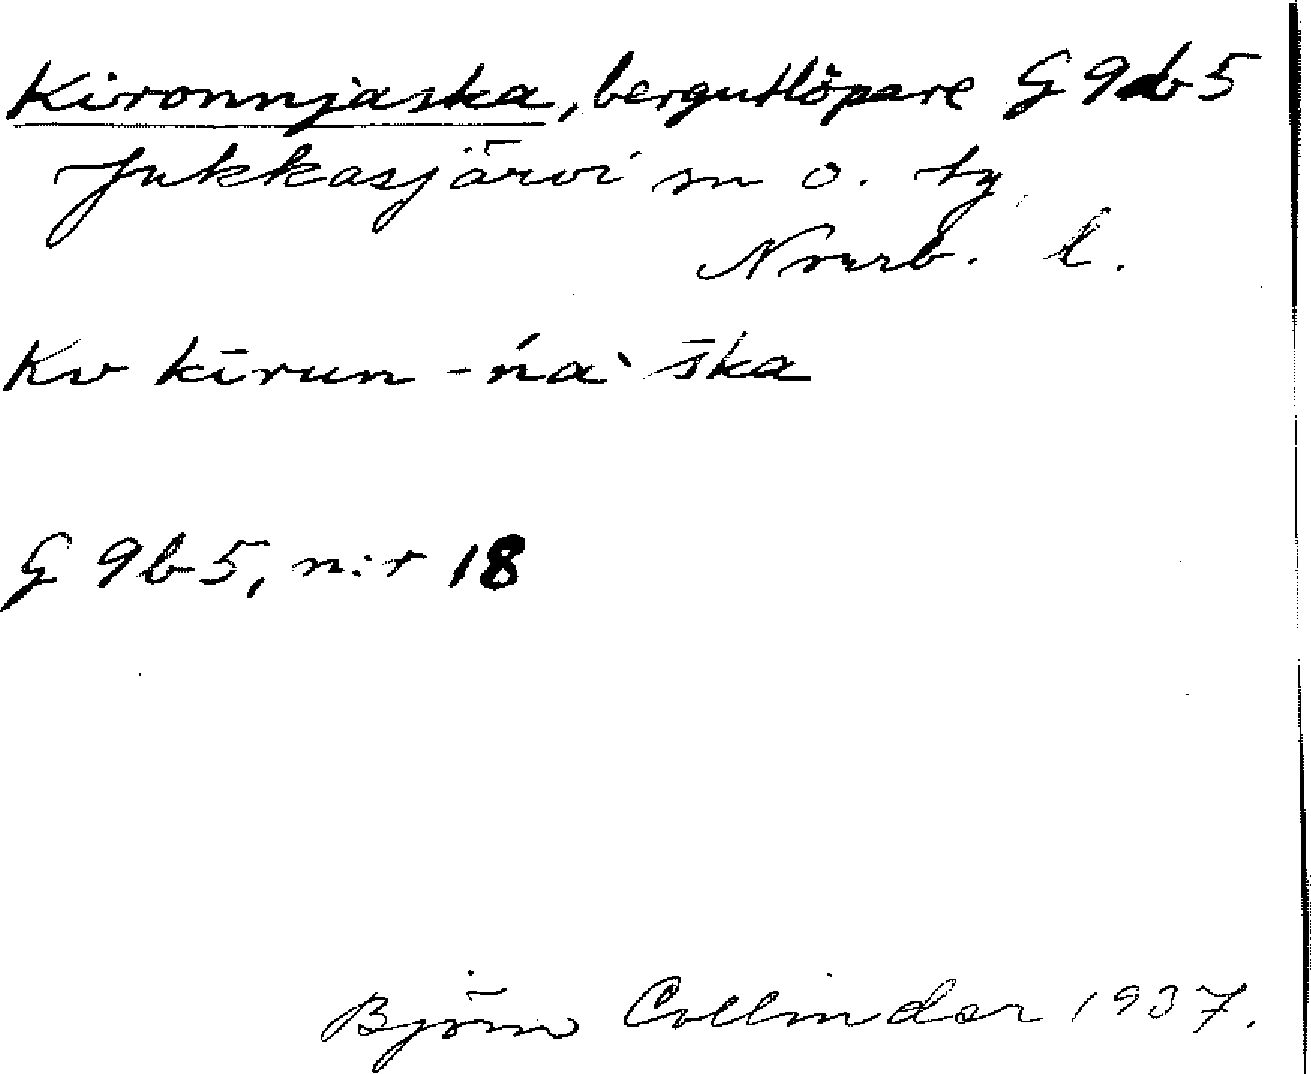 Kironnjaska, bergutlöpare G 9b5
Jukkasjärvi sn o. tg
Nrurb. l.
Kv kīrun-ńa`ška
G 9b5, n:r 18
Björn Collinder 1937.